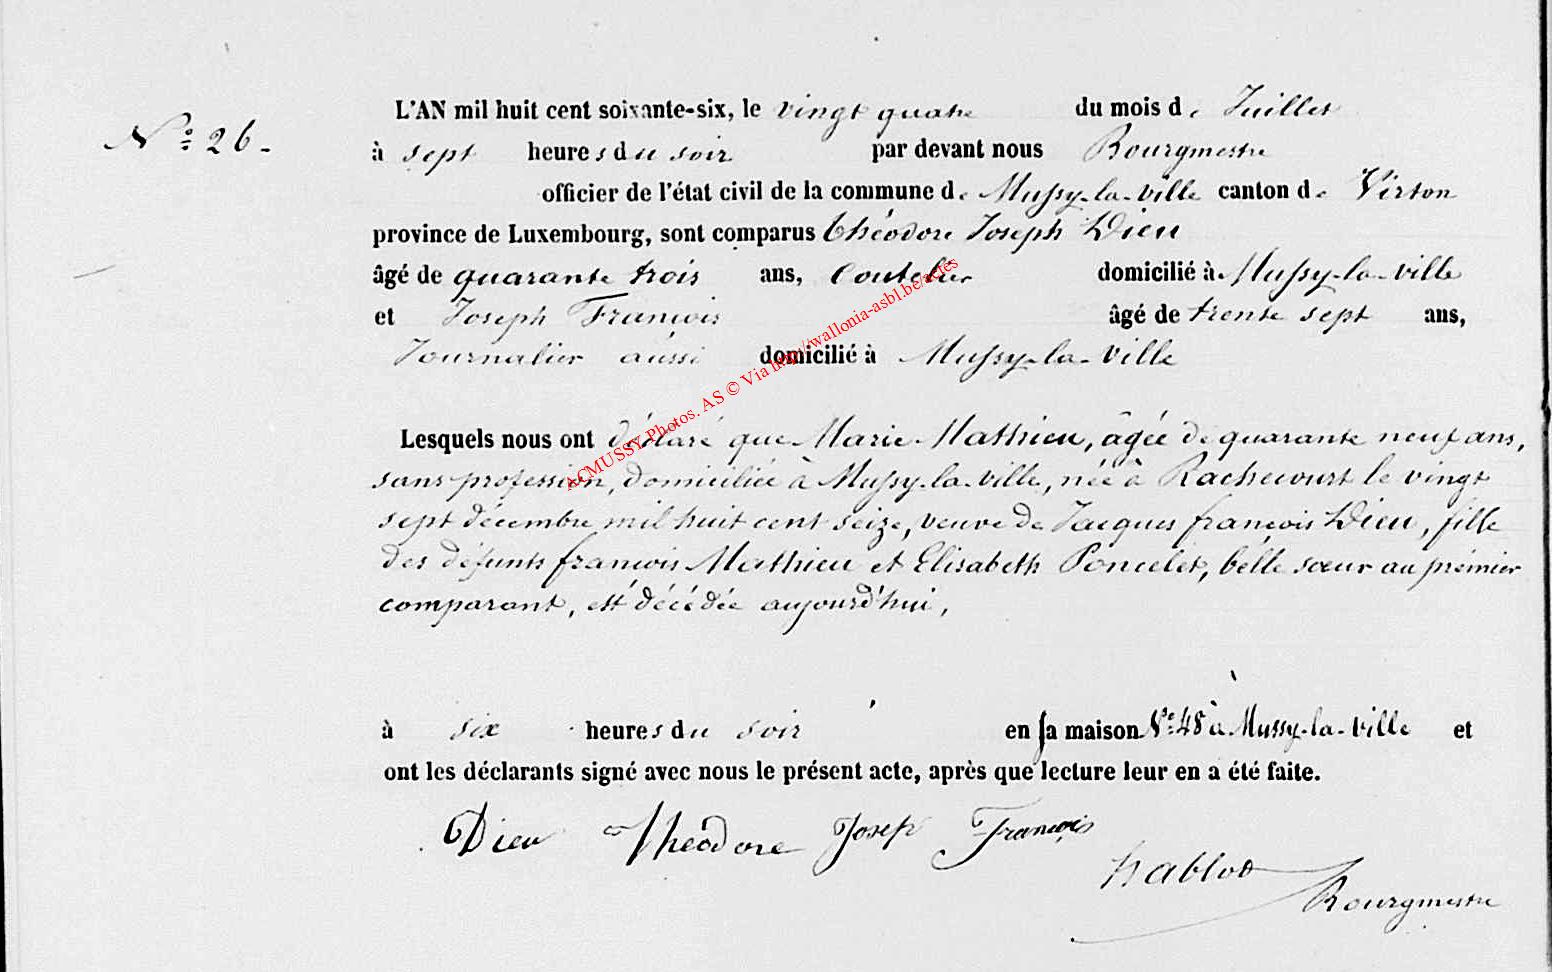 L'AN mil huit cent soixante-six, le vingt quatre du mois de Juillet
N° 26.
à sept heures du soir par devant nous Bourgmestre
officier de l'état civil de la commune de Mussy-la-ville canton de Virton
province de Luxembourg, sont comparus théodore Joseph Dieu
âgé de quarante trois ans, Coutelier domicilié à Mussy-la-ville
et Joseph François âgé de trente sept ans,
Journalier aussi domicilié à Mussy-la-ville
ACMUSSY Photos. AS © Via http://wallonia-asbl.be/actes
Lesquels nous ont déclaré que Marie Mathieu, âgée de quarante neuf ans,
sans profession, domiciliée à Mussy-la-ville, née à Rachecourt le vingt
sept décembre mil huit cent seize, veuve de Jacques françois Dieu, fille
des défunts françois Mathieu et Elisabeth Poncelet, belle sœur au prémier
comparant, est décédée aujourd'hui,
à six heures du soir en sa maison N° 48 à Mussy-la-ville et
ont les déclarants signé avec nous le présent acte, après que lecture leur en a été faite.
Dieu théodore Josep François
hablot
Bourgmestre